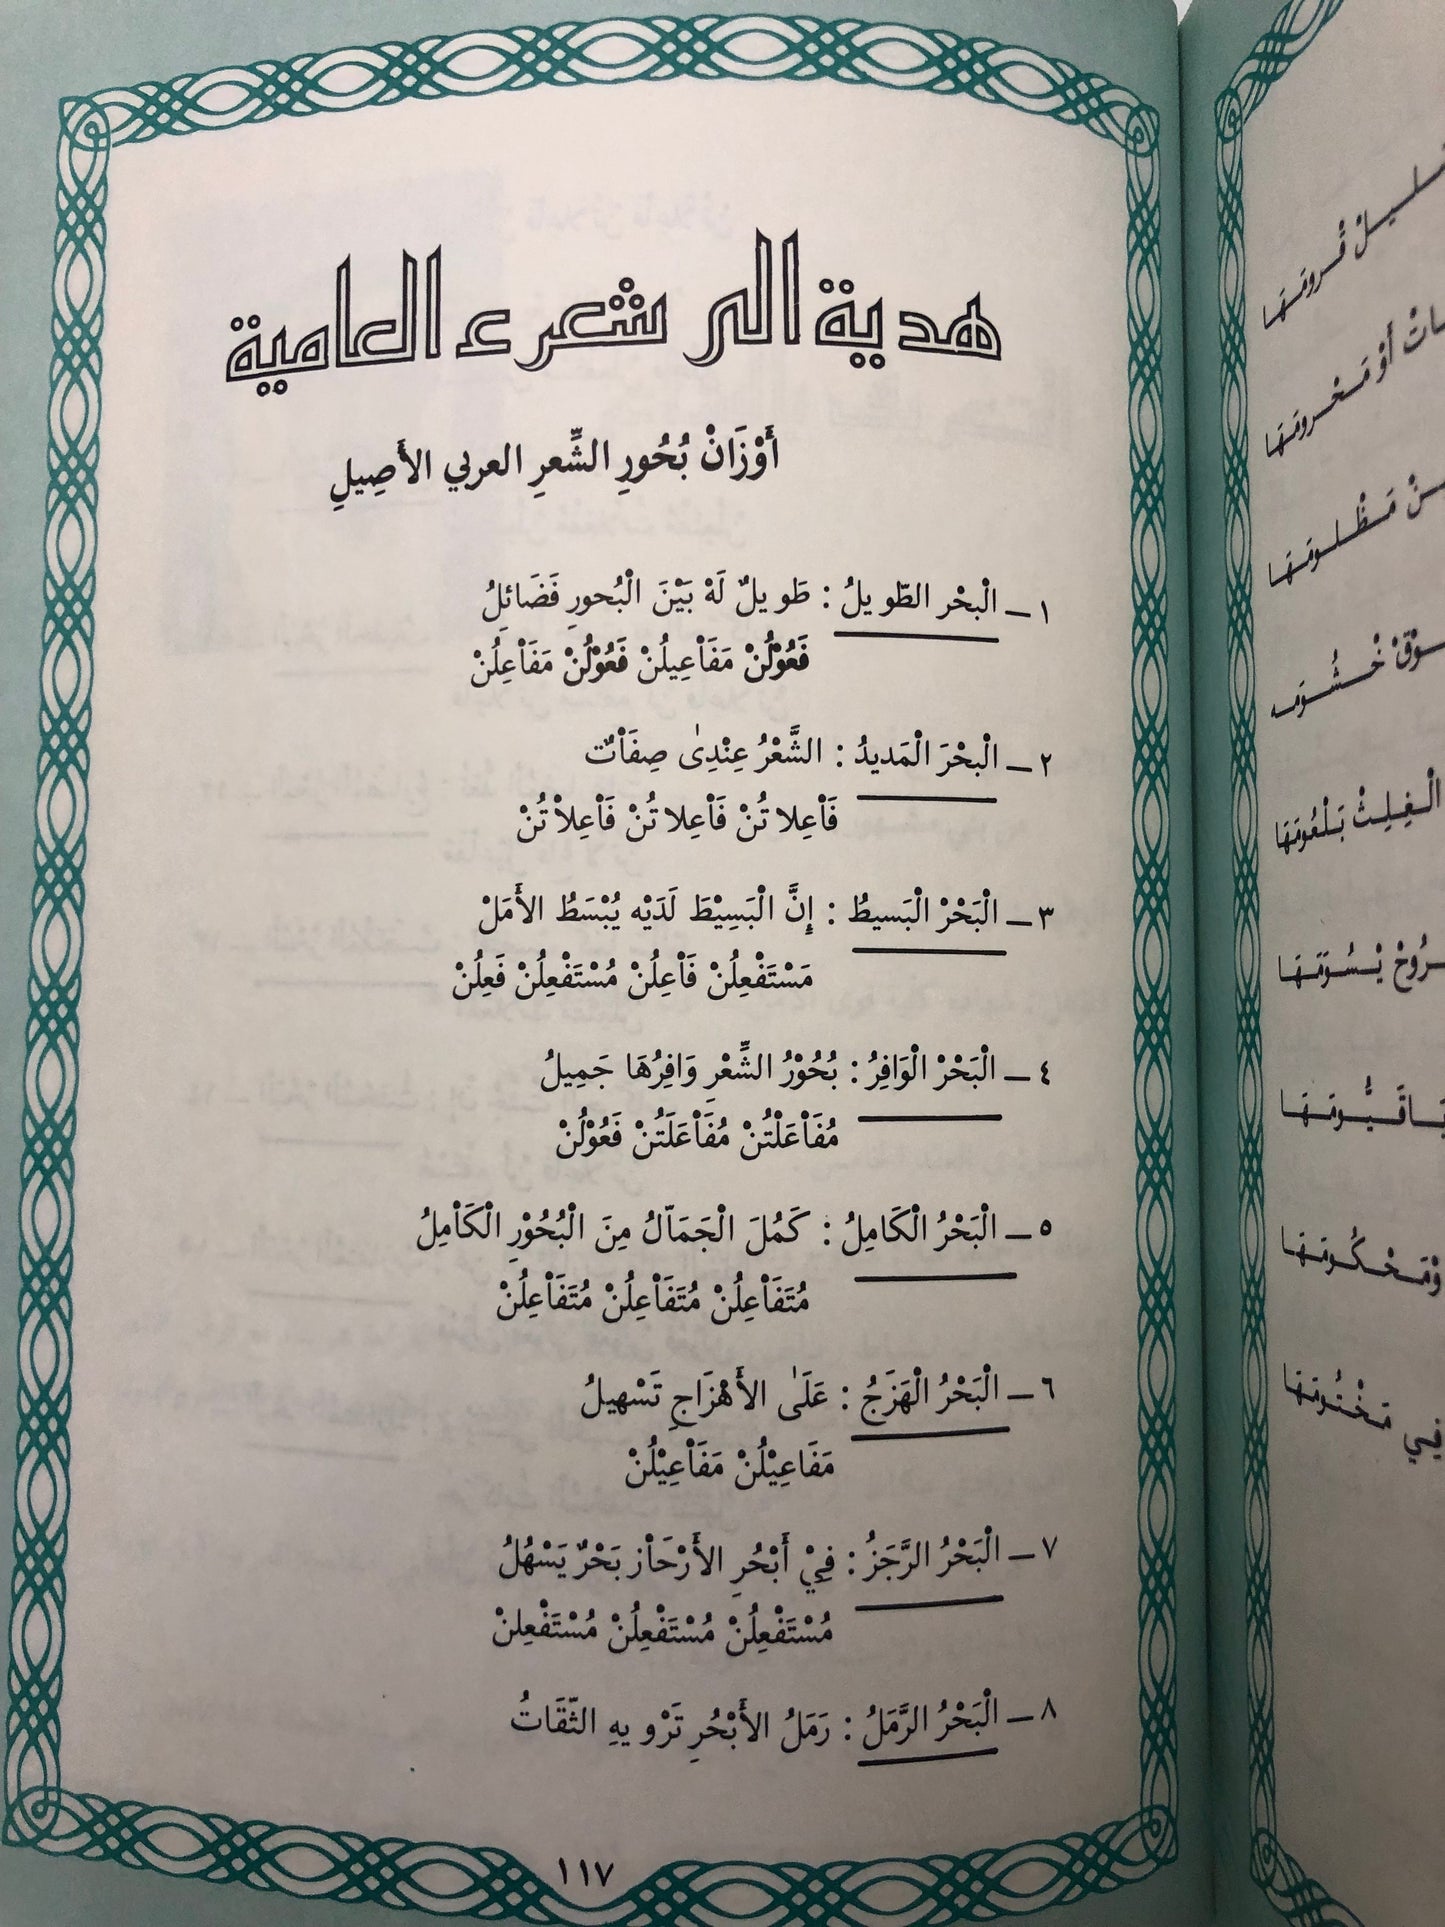 هدية الى شعرء العامية
أَوْزَانْ بُحُورِ الشِّعرِ العربي الأَصِيلِ
١ ــ الْبحْر الطّويلُ : طَويلٌ لَهْ بَيْنَ الْبُحورِ فَضَائلُ
فَعُوْلُنْ مَفَاْعِيلُنْ فَعُوْلُنْ مَفَاْعِلُنْ
٢ ــ الْبحْرَ الْمَديدُ : الشَّعْرُ عِنْدِىٰ صِفَاْتٌ
فَاْعِلاتُنْ فَاْعِلاتُنْ فَاْعِلاْتُنْ
٣ ــ الْبَحْرْ الْبَسيطُ : إِنَّ الْبَسِيْطَ لَدَيْه يُبْسَطُ الأَمَلْ
مَسْتَفْعِلُنْ فَاْعِلُنْ مُسْتَفْعِلُنْ فَعِلُنْ
٤ ــ الْبَحْرْ الْوَافِرُ : بُحُوْرُ الشِّعْرِ وَافِرُهَا جَمِيلُ
مُفَاْعَلْتُنْ مُفَاْعَلَتُنْ فَعُوْلُنْ
٥ ــ الْبَحْرُ الْكَامِلُ : كَمُلَ الْجَمَاْلُ مِنَ الْبُحُوْرِ الْكَاْمِلُ
مُتَفَاْعِلُنْ مُتَفَاْعِلُنْ مُتَفَاْعِلُنْ
٦ ــ الْبَحْرُ الْهَزَجُ : عَلَىٰ الأَهْزَاجِ تَسْهيلُ
مَفَاعِيْلُنْ مَفَاْعِيْلُنْ
٧ ــ الْبَحْرُ الرَّجَزُ : فِيْ أَبْحُرِ الأَرْحَاْزِ بَحْرٌ يَسْهُلُ
مُسْتَفْعِلُنْ مُسْتَفْعِلُنْ مُسْتَفْعِلنْ
٨ ــ الْبَحْرُ الرَّمَلُ : رَمَلُ الأَبْحُرِ تَرْويهِ الثّقَاتُ
١١٧
قْرومَهَا
أَوْ مَحْرومَهَا
مَظْلومَهَا
خْشُومَه
الْفِلِتْ بَلْعُومَهَا
رُوحْ يْسُومَهَا
يَاقَيُّومَهَا
وْمَحْكُومَهَا
فِي مَخْتُومَهَا